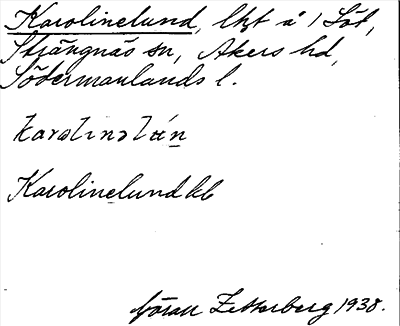 Karolinelund, lht å 1 Söt,
Strängnäs sn, Åkers hd,
Södermanlands l.
Karolinelund kb
Göran Zetterberg 1938.